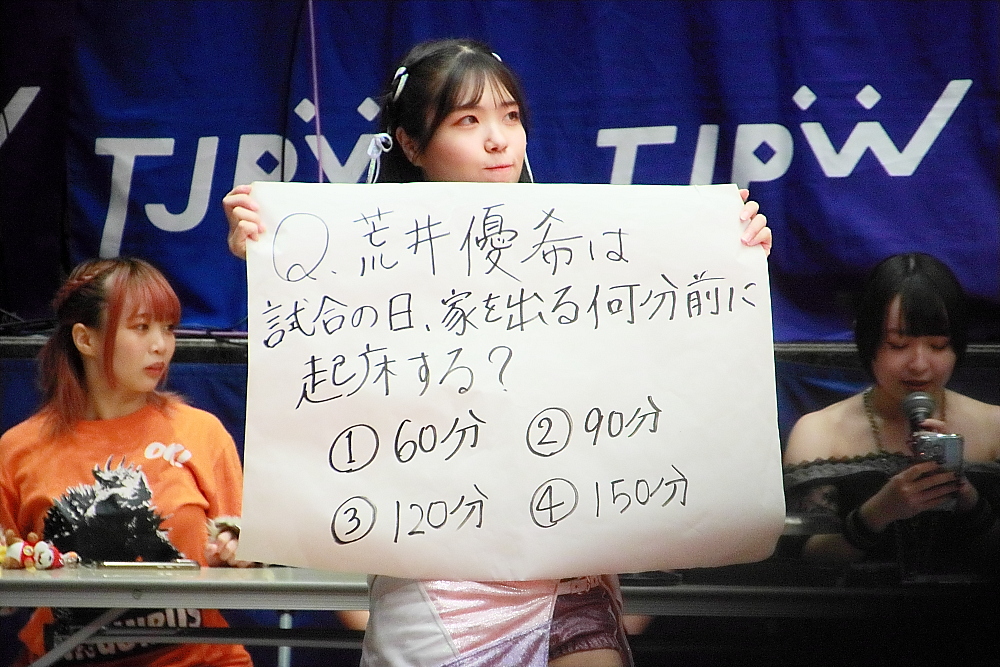 TJPW
TJPW
Q.荒井優希は
試合の日、家を出る何分前に
起床する?
①60分 ②90分
③120分 ④150分